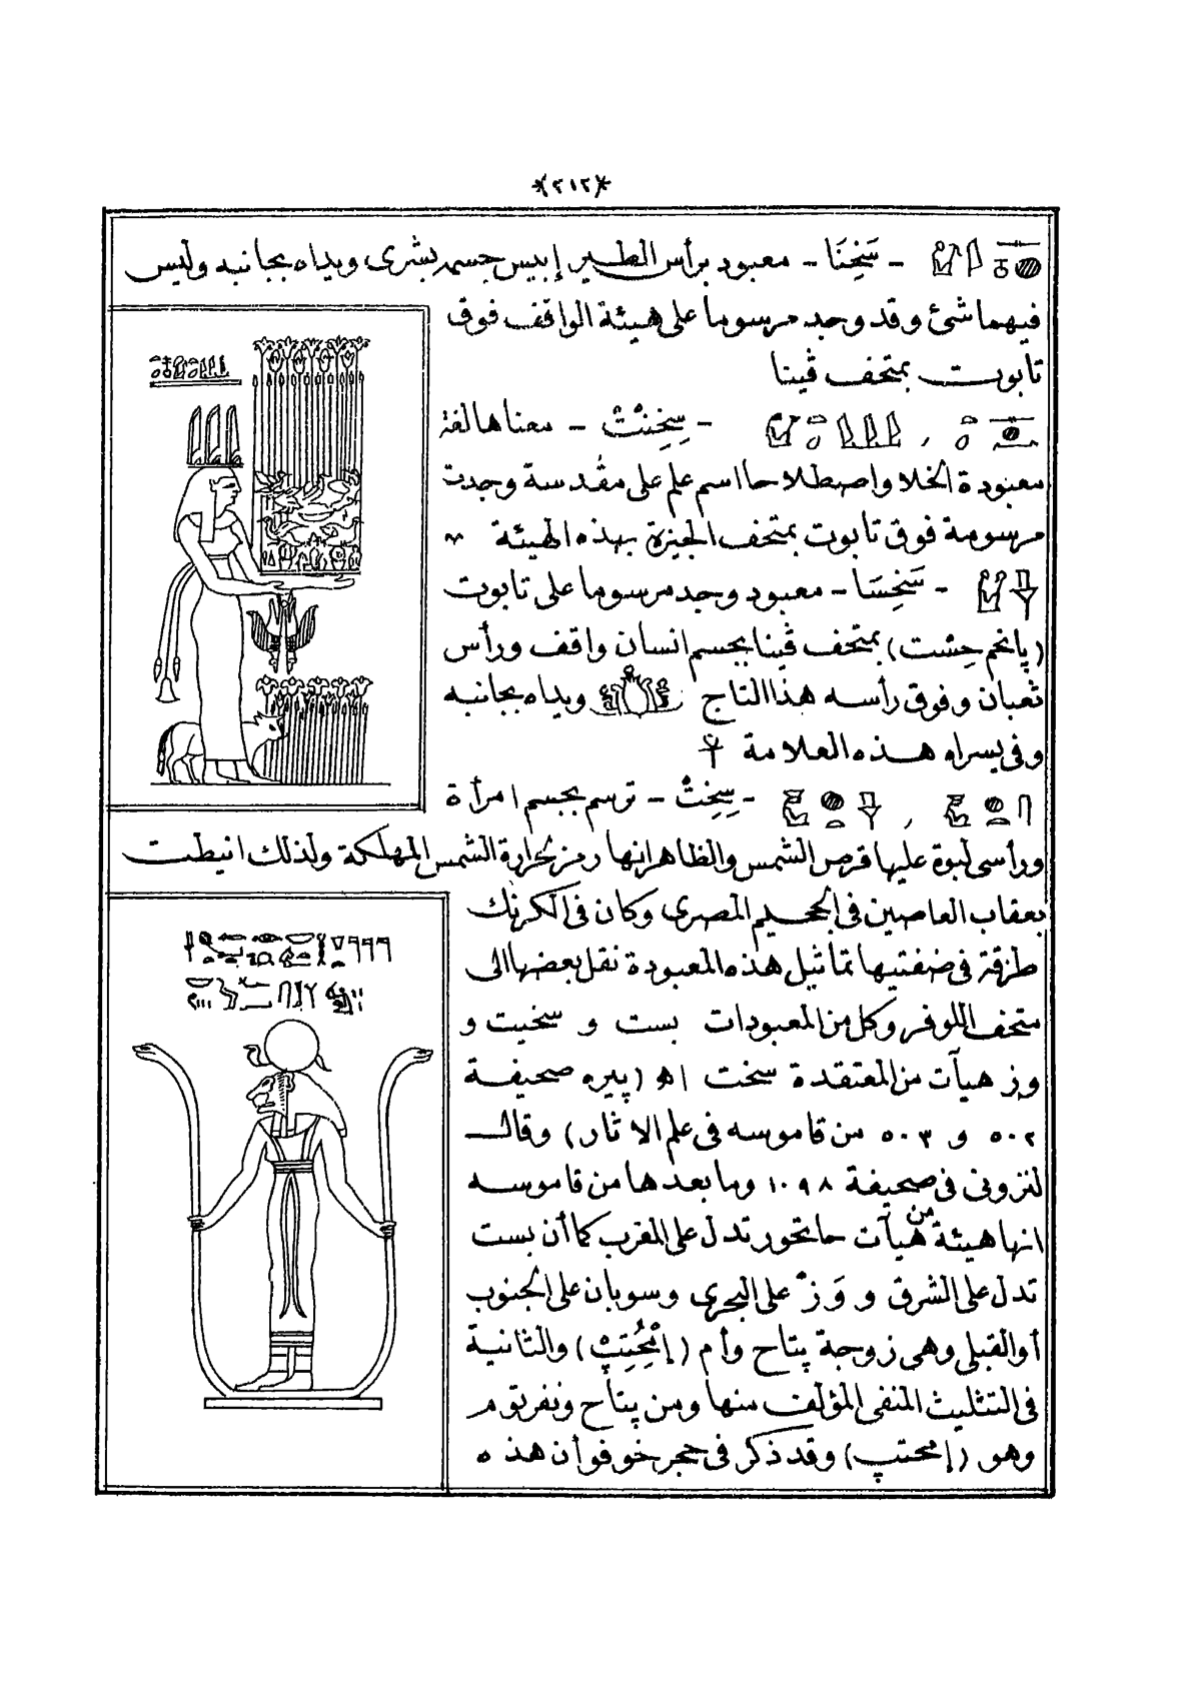 *(٢١٢)*
- سَخِنَا - معبود برأس الطير إبيس جسمه بشرى ويداه بجانبه وليس
فيهما شئ وقد وجد مرسوما على هيئة الواقف فوق
تابوت بمتحف ڤينا
, - سِخِنْتْ - معناها لغة
معبودة الخلا واصطلاحا اسم علم على مقدسة وجدت
مرسومة فوق تابوت بمتحف الجيزة بهذه الهيئة
- سَخِسَا - معبود وجد مرسوما على تابوت
(پانحم حِسْت) بمتحف ڤينا بجسم انسان واقف ورأس
ثعبان وفوق رأسه هذا التاج ويداه بجانبه
وفى يسراه هذه العلامة
, - سِخِتْ - ترسم بجسم امرأة
ورأس لبوة عليها قرص الشمس والظاهر انها رمز لحرارة الشمس المهلكة ولذلك انيطت
بعقاب العاصين فى الجحيم المصرى وكان فى الكرنك
طرقة فى ضفتيها تماثيل هذه المعبودة نقل بعضها الى
متحف اللوفر وكل من المعبودات بست و سخيت و
وز هيآت من المعتقدة سخت اه (پيره صحيفة
٥٠٢ و ٥٠٣ من قاموسه فى علم الاثار) وقال
لنزونى فى صحيفة ١٠٩٨ وما بعدها من قاموسه
انها هيئة من هيآت حاتحور تدل على المغرب كما أن بست
تدل على الشرق و وَزْ على البحرى وسوبان على الجنوب
أو القبلى وهى زوجة پتاح وأم (إمْحُتِپْ) والثانية
فى التثليث المنفى المؤلف منها ومن پتاح ونفرتوم
وهو (إمحتپ) وقد ذكر فى حجر خوفو أن هذه